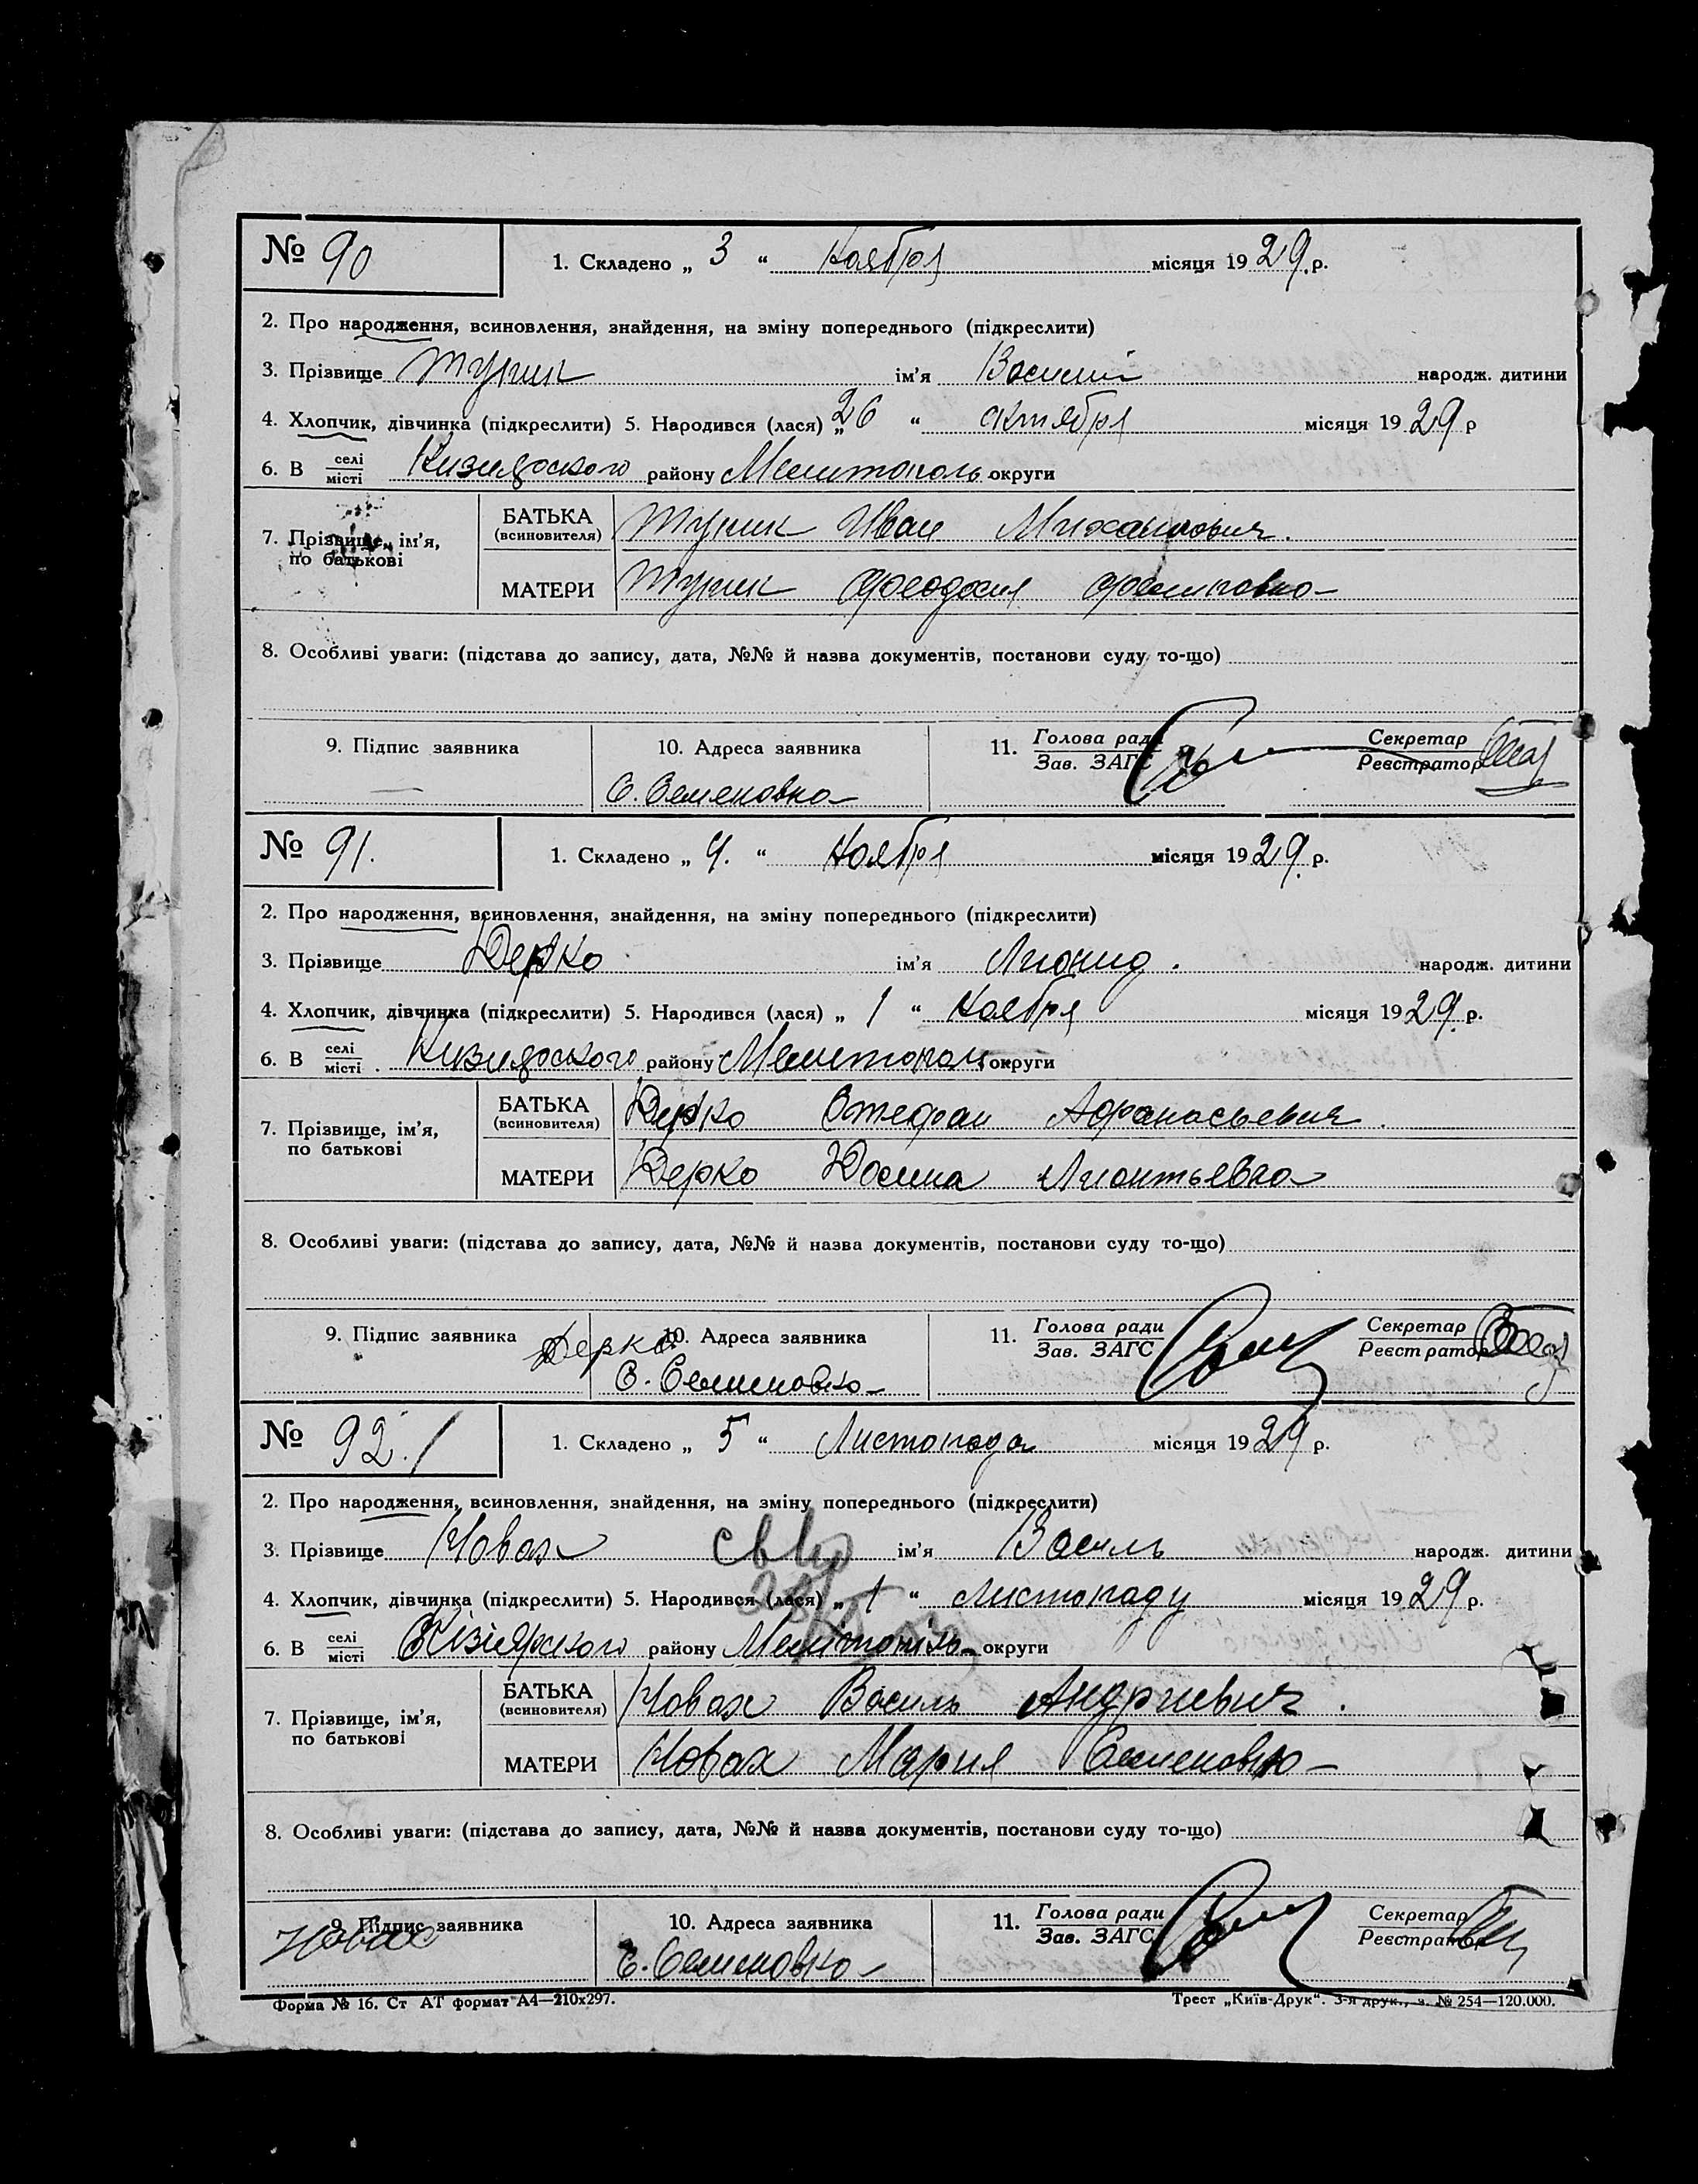 № 90 1. Складено „ 3 “ Ноября місяця 1929. р.
2. Про народження, всиновлення, знайдення, на зміну попереднього (підкреслити)
3. Прізвище ім’я Василий народж. дитини
4. Хлопчик, дівчинка (підкреслити) 5. Народився (лася) „26 “ Октября місяця 1929 р
6. В селі/місті Кизиярского району Мелитополь округи
7. Прізвище, ім’я, по батькові
БАТЬКА (всиновителя) Иван Михайлович.
МАТЕРИ Феодосия Филиповна
8. Особливі уваги: (підстава до запису, дата, №№ й назва документів, постанови суду то-що)
9. Підпис заявника 10. Адреса заявника 11. Голова ради/Зав. ЗАГС Секретар/Реєстратор
С. Семеновка
№ 91. 1. Складено „ 4. “ Ноября місяця 1929. р.
2. Про народження, всиновлення, знайдення, на зміну попереднього (підкреслити)
3. Прізвище Дерко ім’я Лионид. народж. дитини
4. Хлопчик, дівчинка (підкреслити) 5. Народився (лася) „ 1 “ Ноября місяця 1929. р.
6. В селі/місті . Кизиярского району Мелитопол округи
7. Прізвище, ім’я, по батькові
БАТЬКА (всиновителя) Дерко Стефан Афанасьевич.
МАТЕРИ Дерко Лионтьевна
8. Особливі уваги: (підстава до запису, дата, №№ й назва документів, постанови суду то-що)
9. Підпис заявника Дерко 10. Адреса заявника 11. Голова ради/Зав. ЗАГС Секретар/Реєстратор
С. Семиновка
№ 92. 1. Складено „ 5 “ Листопада місяця 1929 р.
2. Про народження, всиновлення, знайдення, на зміну попереднього (підкреслити)
3. Прізвище Новах ім’я Василь народж. дитини
4. Хлопчик, дівчинка (підкреслити) 5. Народився (лася) „ 1 “ Листопаду місяця 1929 р.
6. В селі/місті Кізіярского району Мелітопіль округи
7. Прізвище, ім’я, по батькові
БАТЬКА (всиновителя) Новах Василь Андриевич.
МАТЕРИ Новах Мария Семеновна
8. Особливі уваги: (підстава до запису, дата, №№ й назва документів, постанови суду то-що)
9. Підпис заявника 10. Адреса заявника 11. Голова ради/Зав. ЗАГС Секретар/Реєстратор
Новах С. Семиновка
Форма № 16. Ст АТ формат А4—210х297. Трест „Київ-Друк“. 3-я друк., з. № 254—120.000.